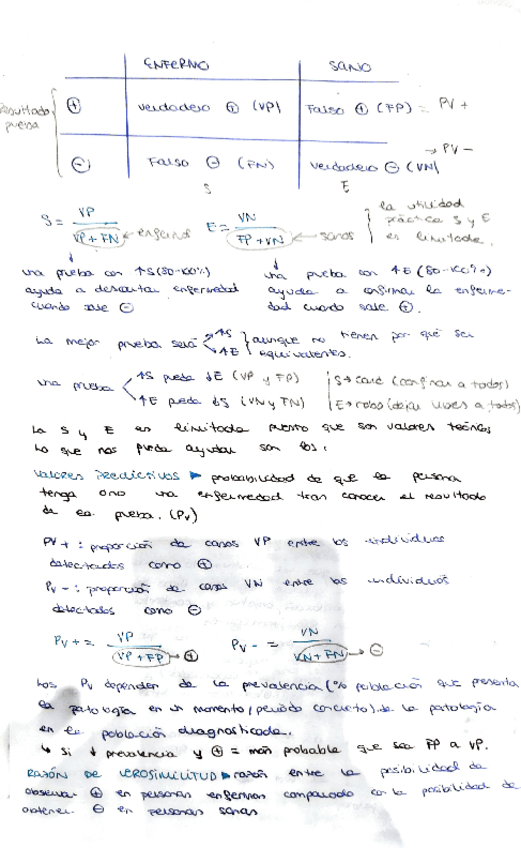 ENFERMO SANO
Resultado prueba
⊕ Verdadero ⊕ (VP) Falso ⊕ (FP) = PV +
⊖ Falso ⊖ (FN) Verdadero ⊖ (VN) → PV -
S E
S = VP / VP + FN ← enfermos E = VN / FP + VN ← sanos
la utilidad
práctica S y E
es limitada.
una prueba con ↑S (80-100%)
ayuda a descartar enfermedad
cuando sale ⊖
una prueba con ↑E (80-100%)
ayuda a confirmar la enferme-
dad cuando sale ⊕.
La mejor prueba será ↑S ↑E } aunque no tienen por qué ser
equivalentes.
una prueba ↑S puede ↓E (VP y FP)
↑E puede ↓S (VN y FN)
S → (confinar a todos)
E → (dejar a todos)
La S y E es limitada puesto que son valores teóricos
Lo que nos puede ayudar son los:
VALORES PREDICTIVOS ▶ probabilidad de que la persona
tenga o no una enfermedad tras conocer el resultado
de la prueba. (PV)
PV + : proporción de casos VP entre los individuos
detectados como ⊕
PV - : proporción de casos VN entre los individuos
detectados como ⊖
PV + = VP / VP + FP → ⊕ PV - = VN / VN + FN → ⊖
Los PV dependen de la prevalencia (% población que presenta
la patología en un momento/periodo concreto) de la patología
en la población diagnosticada.
↳ Si ↓ prevalencia y ⊕ = más probable que sea FP a VP.
RAZÓN DE VEROSIMILITUD ▶ razón entre la posibilidad de
observar ⊕ en personas enfermas comparado con la posibilidad de
obtener ⊖ en personas sanas